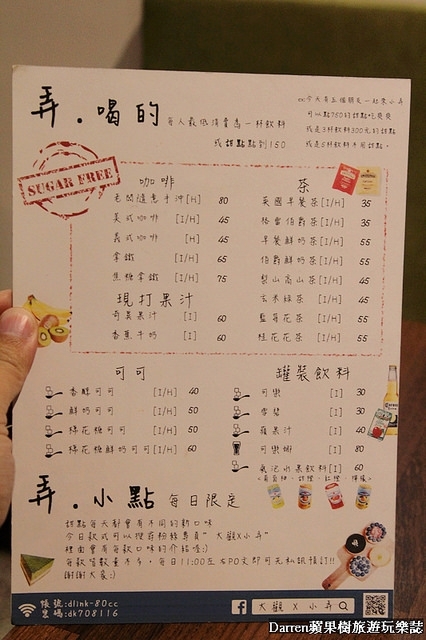 弄.喝的
每人最低消費為一杯飲料
或甜點點到150
ex:今天有五個朋友一起來小弄
可以點750的甜點吃爽爽
或是3杯飲料300元的甜點
或是5杯飲料不用甜點。
SUGAR FREE
咖啡
老闆隨意手沖[I/H] 80
美式咖啡 [I/H] 45
義式咖啡 [H] 45
拿鐵 [I/H] 65
焦糖拿鐵 [I/H] 75
現打果汁
奇異果汁 [I] 60
香蕉牛奶 [I] 60
茶
英國早餐茶[I/H] 35
格雷伯爵茶[I/H] 35
早餐鮮奶茶[I/H] 55
伯爵鮮奶茶[I/H] 55
梨山高山茶[I/H] 45
玄米綠茶 [I/H] 45
藍莓花茶 [I/H] 55
桂花花茶 [I/H] 55
可可
香醇可可 [I/H] 40
鮮奶可可 [I/H] 50
棉花糖可可 [I/H] 50
棉花糖鮮奶可可[I/H] 60
罐裝飲料
可樂 [I] 30
雪碧 [I] 30
蘋果汁 [I] 40
可樂娜 [I] 80
氣泡水果飲料[I] 60
弄.小點 每日限定
甜點每天都會有不同的新口味
今日款式可以搜尋粉絲專頁"大觀X小弄"
裡面會有每款口味的介紹唷:)
每款質數量不多,每日11:00左右PO文即可先私訊預訂!!
謝謝大家:)
帳號:dlink-80cc
密碼:dk708116
f 大觀X小弄
Darren蘋果樹旅遊玩樂誌